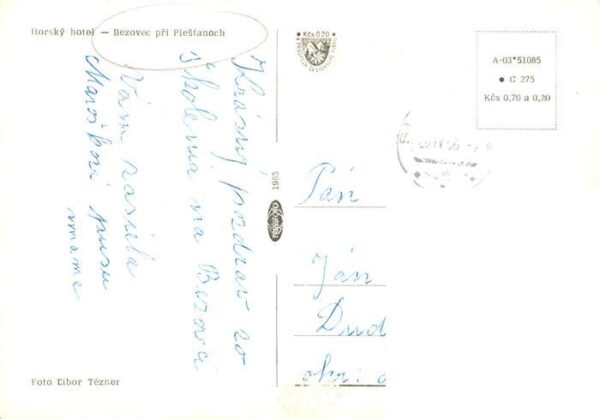 Horský hotel — Bezovec při Piešťanoch
Krásny pozdrav zo
školenia na Bezovci
Vám zasiela
Maroškovi pusu
mama
Foto Libor Tézner
1965
PRESSFOTO
Kčs 0,20
A-03*51085
● C 275
Kčs 0,70 a 0,20
Pán
Ján
Dud
okr: